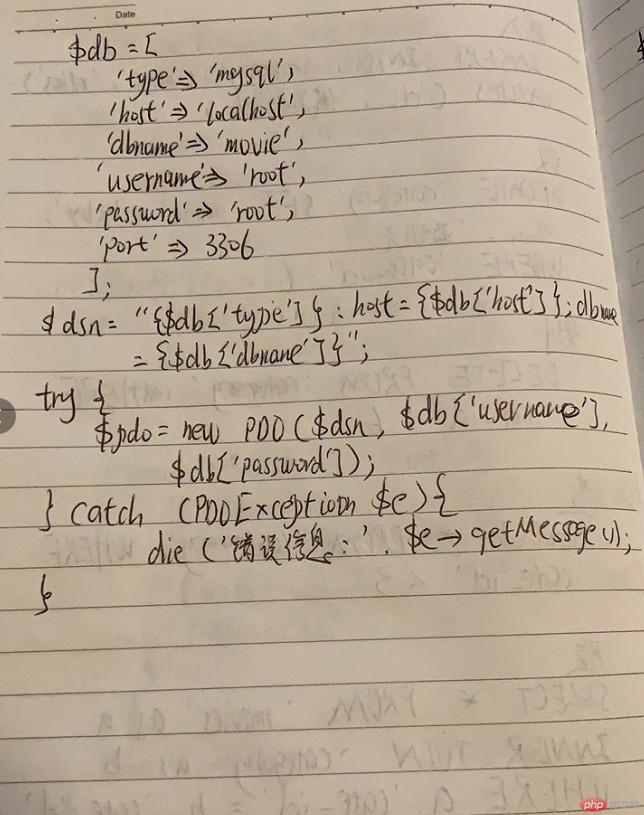 Date
$db = [
'type' => 'mysql',
'host' => 'localhost',
'dbname' => 'movie',
'username' => 'root',
'password' => 'root',
'port' => 3306
];
$dsn = "{$db['type']} : host = {$db['host']} ; dbname
= {$db['dbname']}";
try {
$pdo = new PDO ($dsn, $db['username'],
$db['password']);
} catch (PDOException $e) {
die ('错误信息:' . $e -> getMessage());
}
php